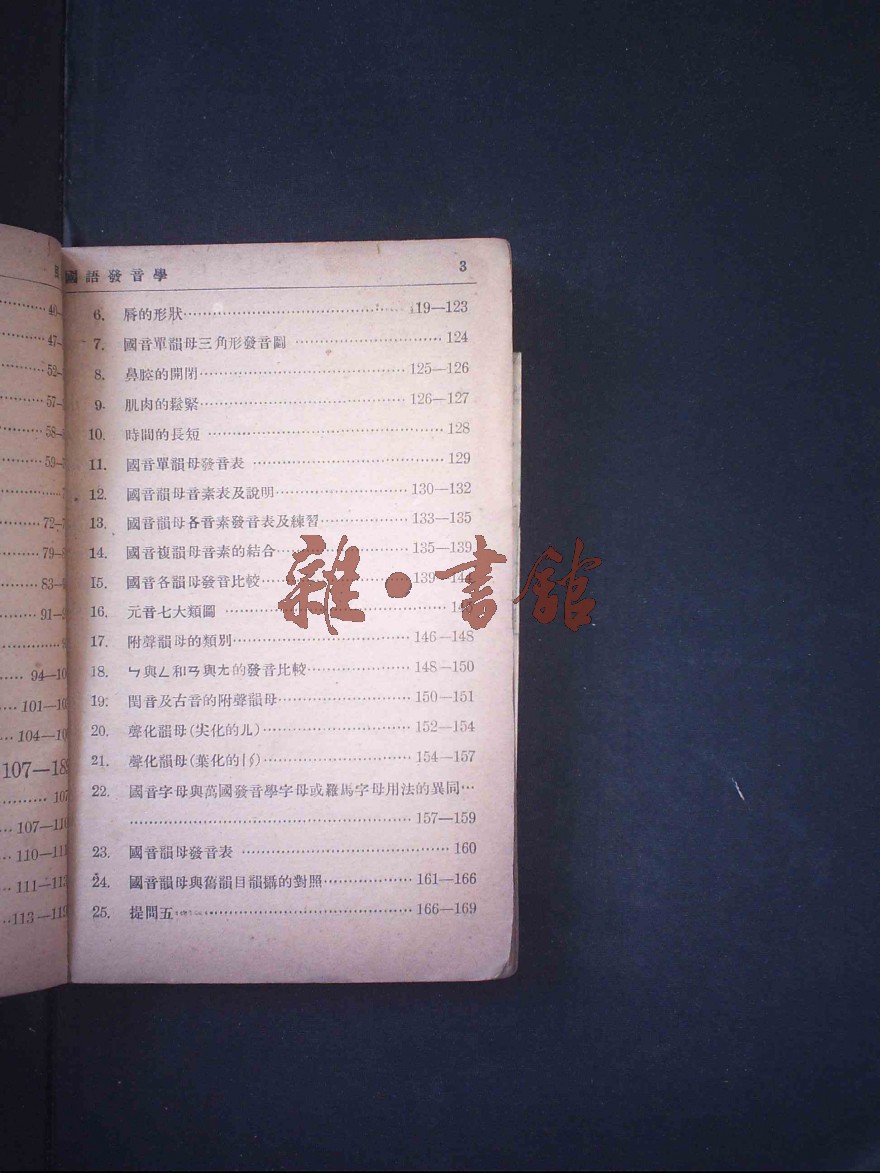 國語發音學 3
6. 唇的形狀 119—123
7. 國音單韻母三角形發音圖 124
8. 鼻腔的開閉 125—126
9. 肌肉的鬆緊 126—127
10. 時間的長短 128
11. 國音單韻母發音表 129
12. 國音韻母音素表及說明 130—132
13. 國音韻母各音素發音表及練習 133—135
14. 國音複韻母音素的結合 135—139
15. 國音各韻母發音比較 139—
16. 元音七大類圖
17. 附聲韻母的類別 146—148
18. ㄣ與ㄥ和ㄢ與ㄤ的發音比較 148—150
19. 閏音及古音的附聲韻母 150—151
20. 聲化韻母(尖化的ㄦ) 152—154
21. 聲化韻母(葉化的) 154—157
22. 國音字母與萬國發音學字母或羅馬字母用法的異同
157—159
23. 國音韻母發音表 160
24. 國音韻母與舊韻目韻攝的對照 161—166
25. 提問五 166—169
雜·書館
40
47
52
57
58
59
72
79
83
91
94
101
104
107
107
107
110
111
113